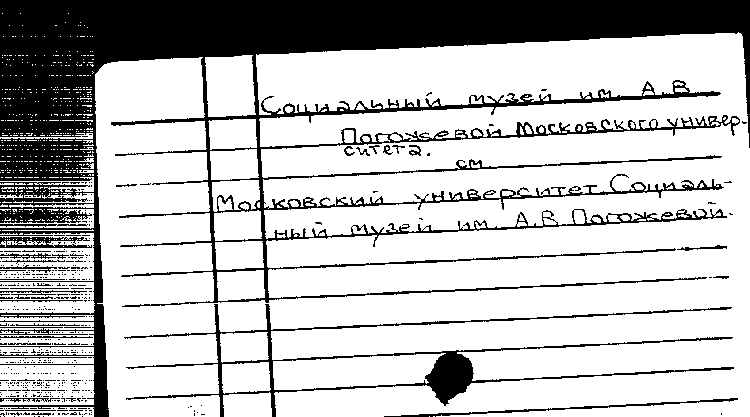 Социальный музей им. А.В
Погожевой Московского универ-
ситета.
см
Московский университет. Социаль-
ный музей им. А.В. Погожевой.